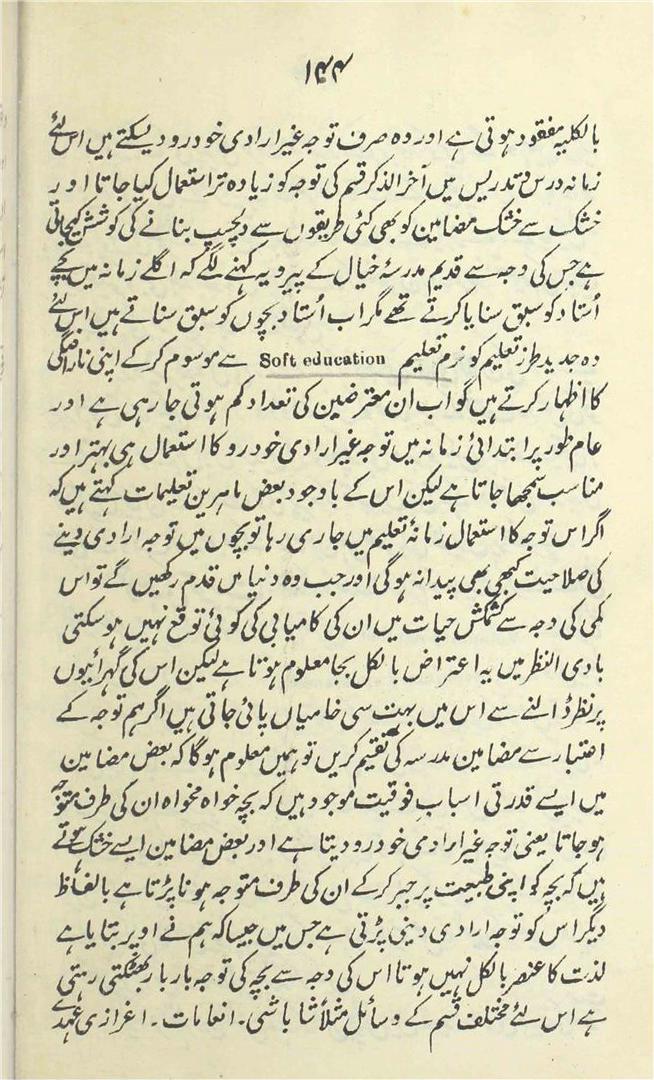 ۱۴۴
بالکلیہ مفقود ہوتی ہے اور وہ صرف توجہ غیر ارادی خودرو دیسکتے ہیں اس لئے
زمانہ درس و تدریس میں آخر الذکر قسم کی توجہ کو زیادہ تر استعمال کیا جاتا اور
خشک سے خشک مضامین کو بھی کئی طریقوں سے دلچسپ بنانے کی کوشش کیجاتی
ہے جس کی وجہ سے قدیم مدرسۂ خیال کے پیرو یہ کہنے لگے کہ اگلے زمانہ میں بچے
اُستاد کو سبق سنایا کرتے تھے مگر اب اُستاد بچوں کو سبق سناتے ہیں اس لئے
وہ جدید طرز تعلیم کو نرم تعلیم Soft education سے موسوم کر کے اپنی ناراضگی
کا اظہار کرتے ہیں گو اب ان معترضین کی تعداد کم ہوتی جارہی ہے اور
عام طور پر ابتدائی زمانہ میں توجہ غیر ارادی خودرو کا استعمال ہی بہتر اور
مناسب سمجھا جاتا ہے لیکن اس کے باوجود بعض ماہرین تعلیمات کہتے ہیں کہ
اگر اس توجہ کا استعمال زمانۂ تعلیم میں جاری رہا تو بچوں میں توجہ ارادی دینے
کی صلاحیت کبھی بھی پیدا نہ ہوگی اور جب وہ دنیا میں قدم رکھیں گے تو اس
کمی کی وجہ سے کشمکش حیات میں ان کی کامیابی کی کوئی توقع نہیں ہوسکتی
بادی النظر میں یہ اعتراض بالکل بجا معلوم ہوتا ہے لیکن اس کی گہرائیوں
پر نظر ڈالنے سے اس میں بہت سی خامیاں پائی جاتی ہیں اگر ہم توجہ کے
اعتبار سے مضامین مدرسہ کی تقیم کریں تو ہمیں معلوم ہوگا کہ بعض مضامین
میں ایسے قدرتی اسباب فوقیت موجود ہیں کہ بچہ خواہ مخواہ ان کی طرف متوجہ
ہوجاتا یعنی توجہ غیر ارادی خودرو دیتا ہے اور بعض مضامین ایسے خشک ہوتے
ہیں کہ بچہ کو اپنی طبیعت پر جبر کر کے ان کی طرف متوجہ ہونا پڑتا ہے بالفاظ
دیگر اس کو توجہ ارادی دینی پڑتی ہے جس میں جیسا کہ ہم نے اوپر بتایا ہے
لذت کا عنصر بالکل نہیں ہوتا اس کی وجہ سے بچہ کی توجہ بار بار بھٹکتی رہتی
ہے اس لئے مختلف قسم کے وسائل مثلاً شاباشی۔ انعامات۔ اغرازی عہدے